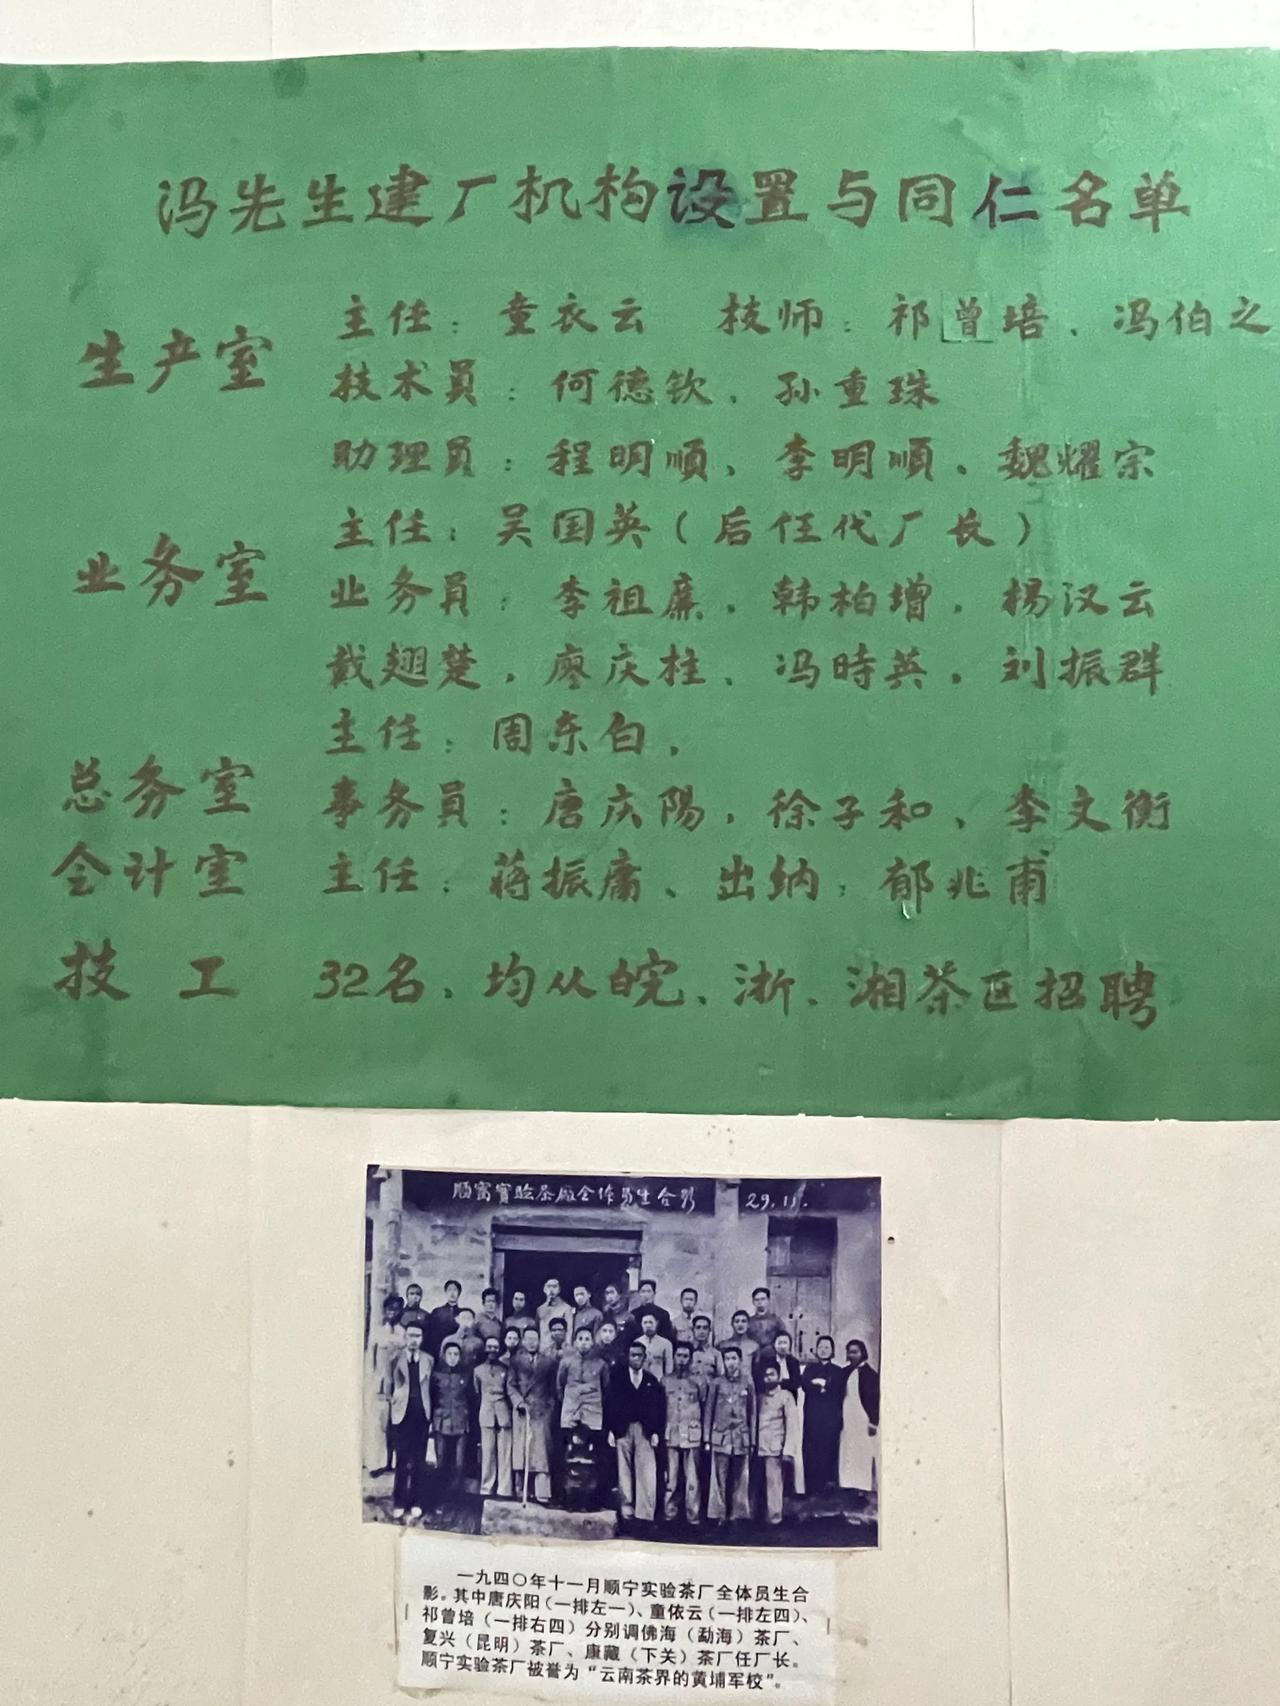 冯先生建厂机构设置与同仁名单
生产室
主任：童衣云 技师：祁曾培、冯伯之
技术员：何德钦、孙重珠
助理员：程明順、李明順、魏耀宗
业务室
主任：吴国英（后任代厂长）
业务員：李祖廉、韩柏增、杨汉云
戴翅楚、廖庆柱、冯時英、刘振群
总务室
主任：周东白、
事务員：唐庆陽、徐子和、李文衡
会计室 主任：蒋振庸、出纳：郁兆甫
技工 32名、均从皖、浙、湘茶区招聘
順甯實验茶廠全体員生合影 29.11.
一九四〇年十一月顺宁实验茶厂全体员生合
影。其中唐庆阳（一排左一）、童依云（一排左四）、
祁曾培（一排右四）分别调佛海（勐海）茶厂、
复兴（昆明）茶厂、康藏（下关）茶厂任厂长。
顺宁实验茶厂被誉为“云南茶界的黄埔军校”。